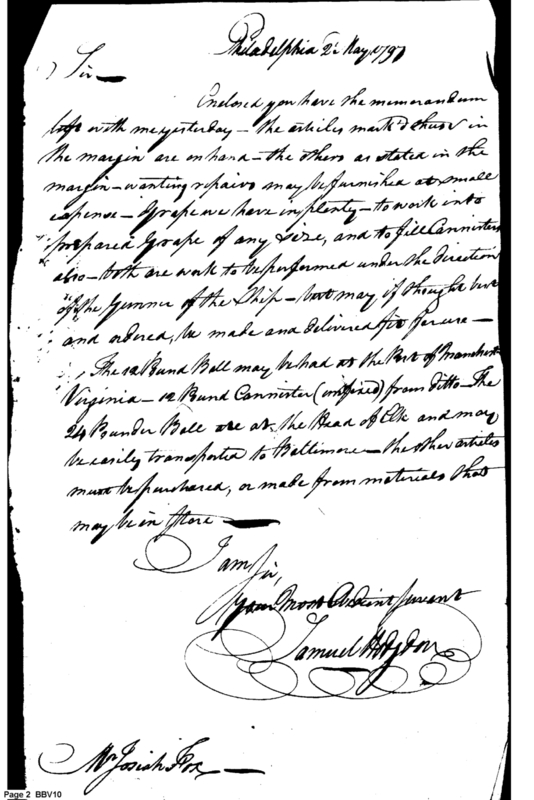 Philadelphia 2d May 1797
Sir
Enclosed you have the memorandum
left with me yesterday – the articles mark'd thus in
the margin are on hand – the others as stated in the
margin – wanting repairs may be furnished at small
expense – Grape we have in plenty – to work into
prepared Grape of any size, and to fill Cannisters
also – both are work to be performed under the direction
of the Gunner of the Ship – but may if thought best
and ordered, be made and delivered fit for use –
The 12 Pound Ball may be had at the Port of Manchester
Virginia – 12 Pund Cannister (unfixed) from ditto – The
24 Pounder Ball are at the Head of Elk and may
be easily transported to Baltimore – the other articles
must be purchased, or made from materials that
may be in Store
I am Sir,
Your Most Obedient Servant
Samuel Hodgdon
Mr Josiah Fox
Page 2 BBV10